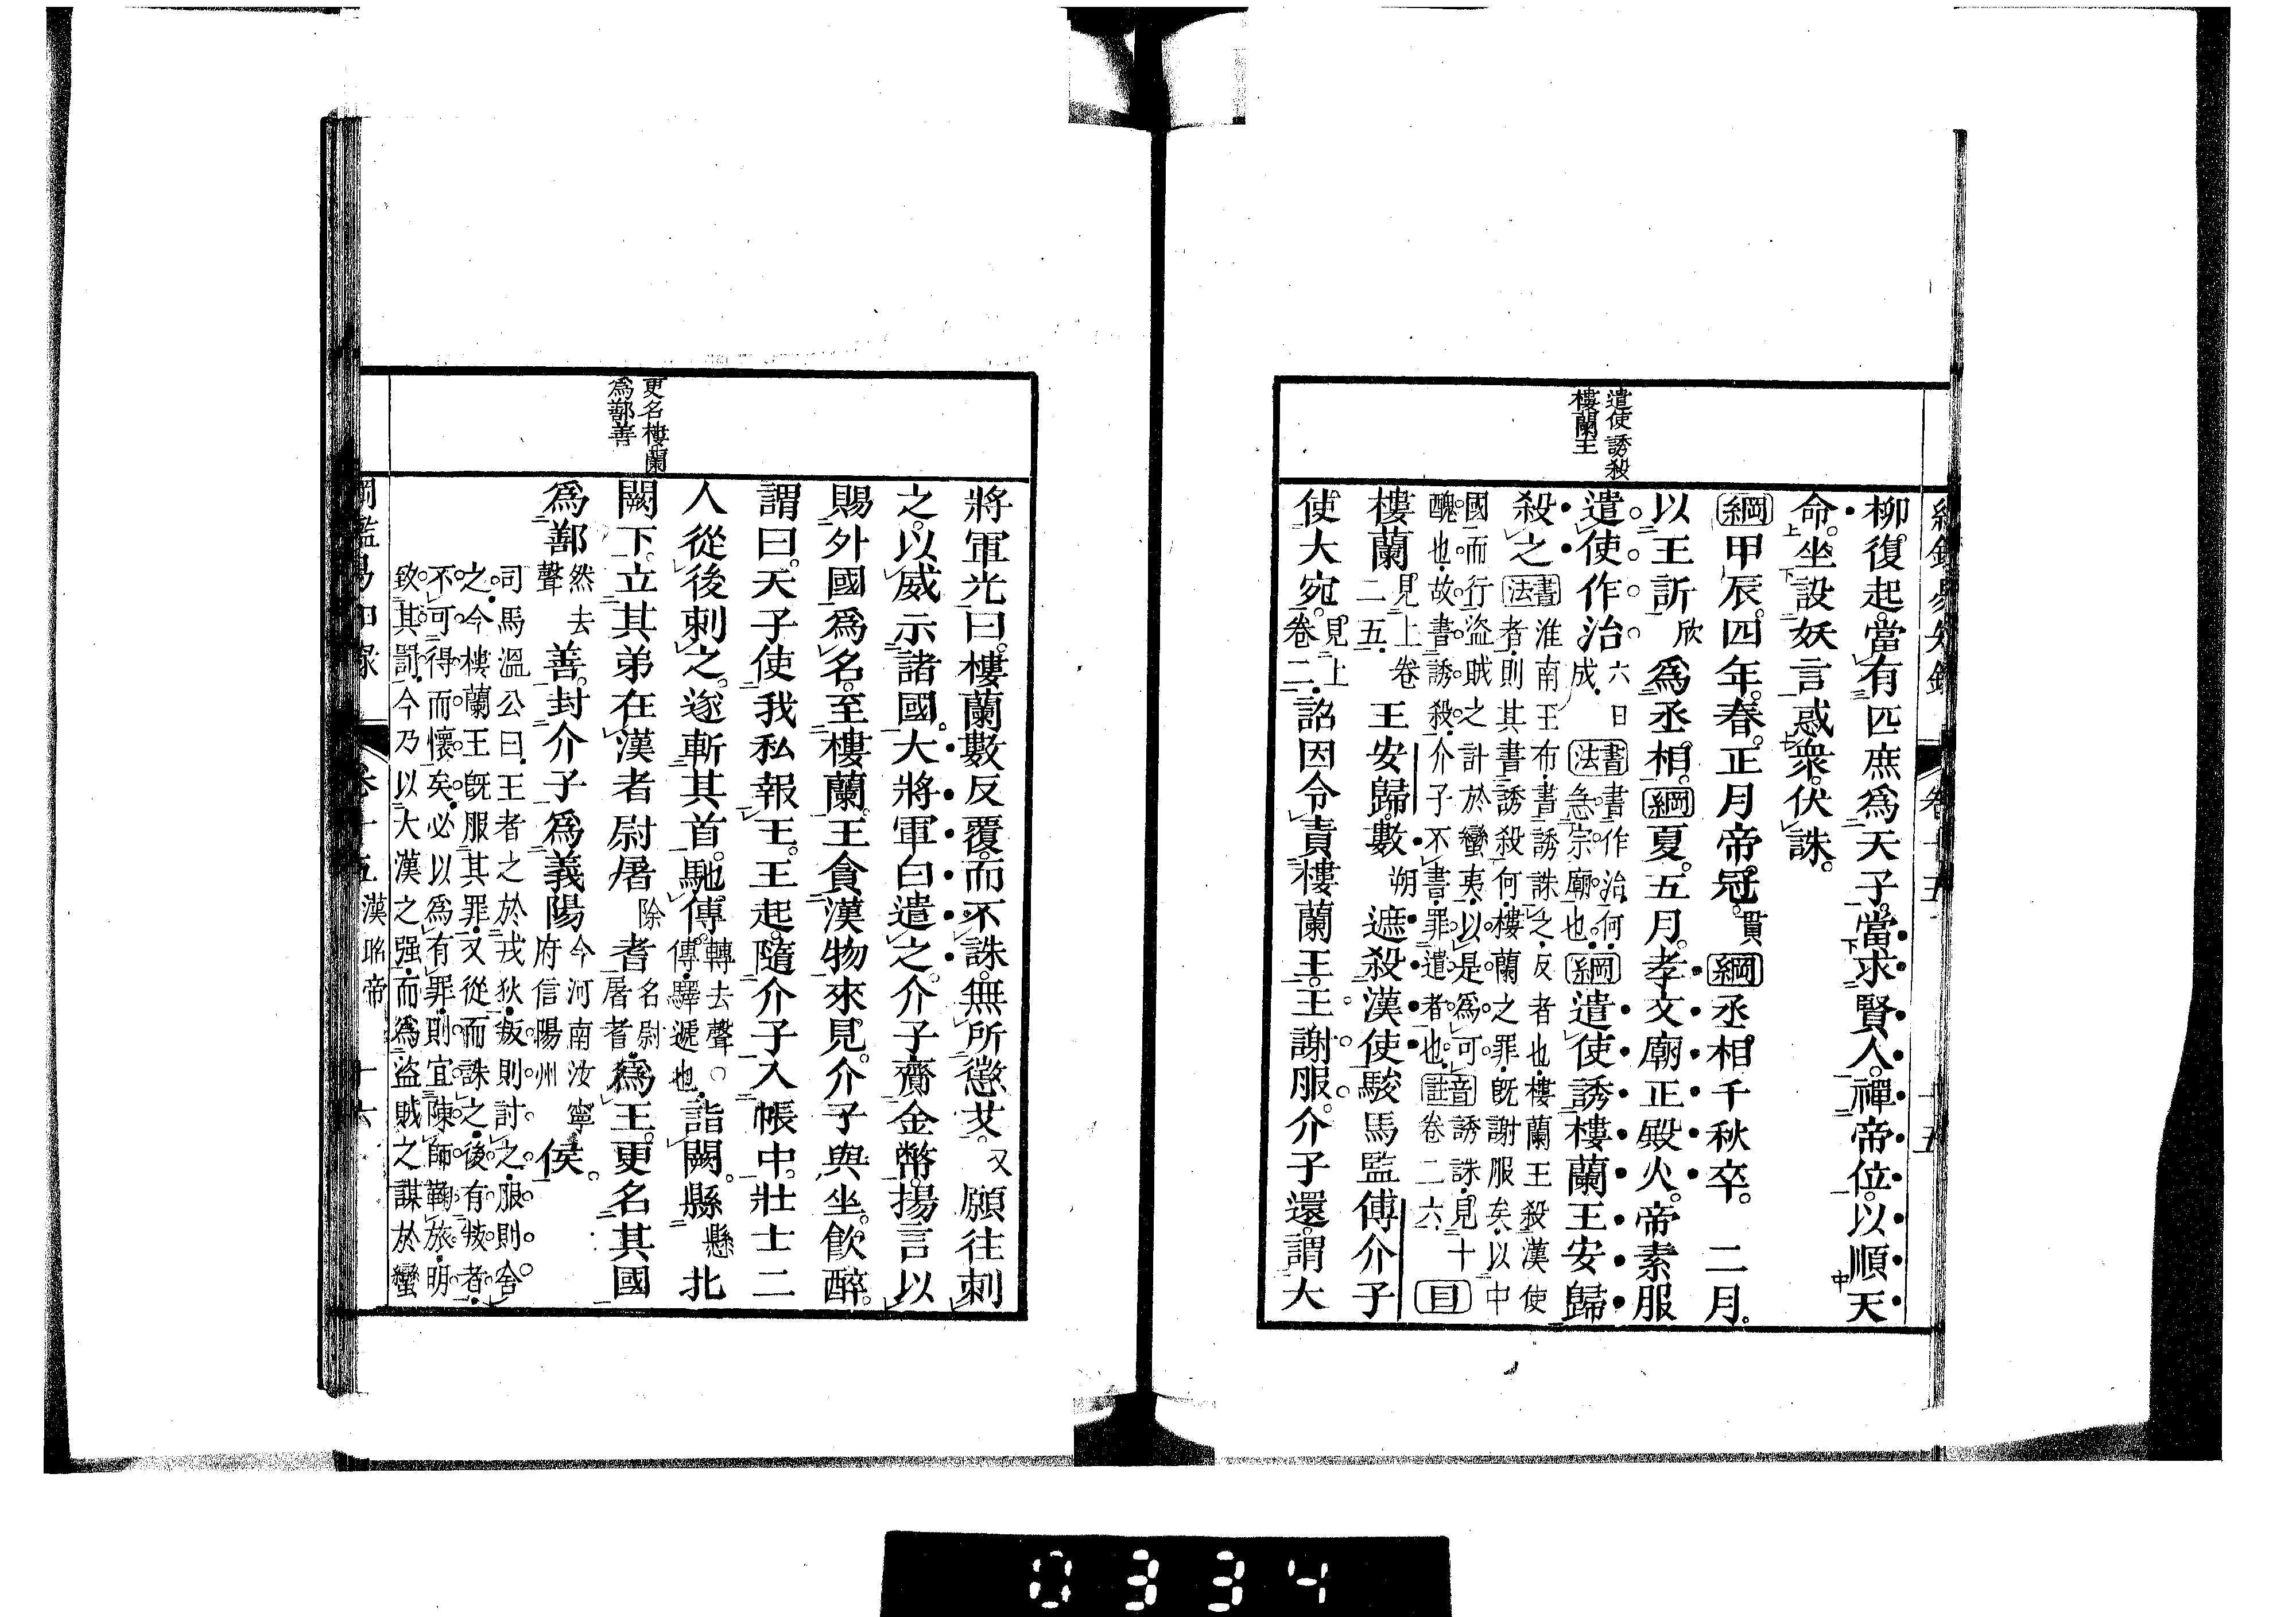 柳。復起。當有匹庶爲天子。當求賢人。禪帝位。以順天
命。坐設妖言惑衆。伏誅。
綱甲辰。四年。春。正月。帝冠。貫綱丞相千秋卒。二月。
以王訢欣爲丞相。綱夏。五月。孝文廟正殿火。帝素服
遣使作治。六日成。書法書作治。何。急宗廟也。綱遣使誘樓蘭王安歸
遣使誘殺
樓蘭王
殺之書法淮南王布。書誘誅之。反者也。樓蘭王殺漢使
者。則其書誘殺何。樓蘭之罪。既謝服矣。以中
國而行盜賊之計於蠻夷。以是爲可
醜也。故書誘殺。介子不書。罪遣者也。音註誘誅。見十卷二六。目
樓蘭見上卷二五。王安歸。數朔遮殺漢使。駿馬監傅介子
使大宛。見上卷二。詔因令責樓蘭王。王謝服。介子還。謂大
卷十五
十五
將軍光曰。樓蘭數反覆。而不誅。無所懲艾。乂願往刺
之。以威示諸國。大將軍白遣之。介子齎金幣。揚言以
賜外國爲名。至樓蘭。王貪漢物來見。介子與坐。飮醉。
謂曰。天子使我私報王。王起。隨介子入帳中。壯士二
人從後刺之。遂斬其首。馳傳。轉去聲。傳。驛遞也。詣闕。縣懸北
更名樓蘭
爲鄯善
闕下。立其弟在漢者尉屠耆除名尉屠耆。爲王。更名其國
爲鄯然去聲善。封介子爲義陽今河南汝寧府信陽州侯。
司馬溫公曰。王者之於戎狄。叛則討之。服則舍
之。今樓蘭王既服其罪。又從而誅之。後有叛者。
不可得而懷矣。必以爲有罪。則宜陳師鞠旅。明
致其罰。今乃以大漢之强。而爲盜賊之謀於蠻
卷十五 漢昭帝 十六
0334